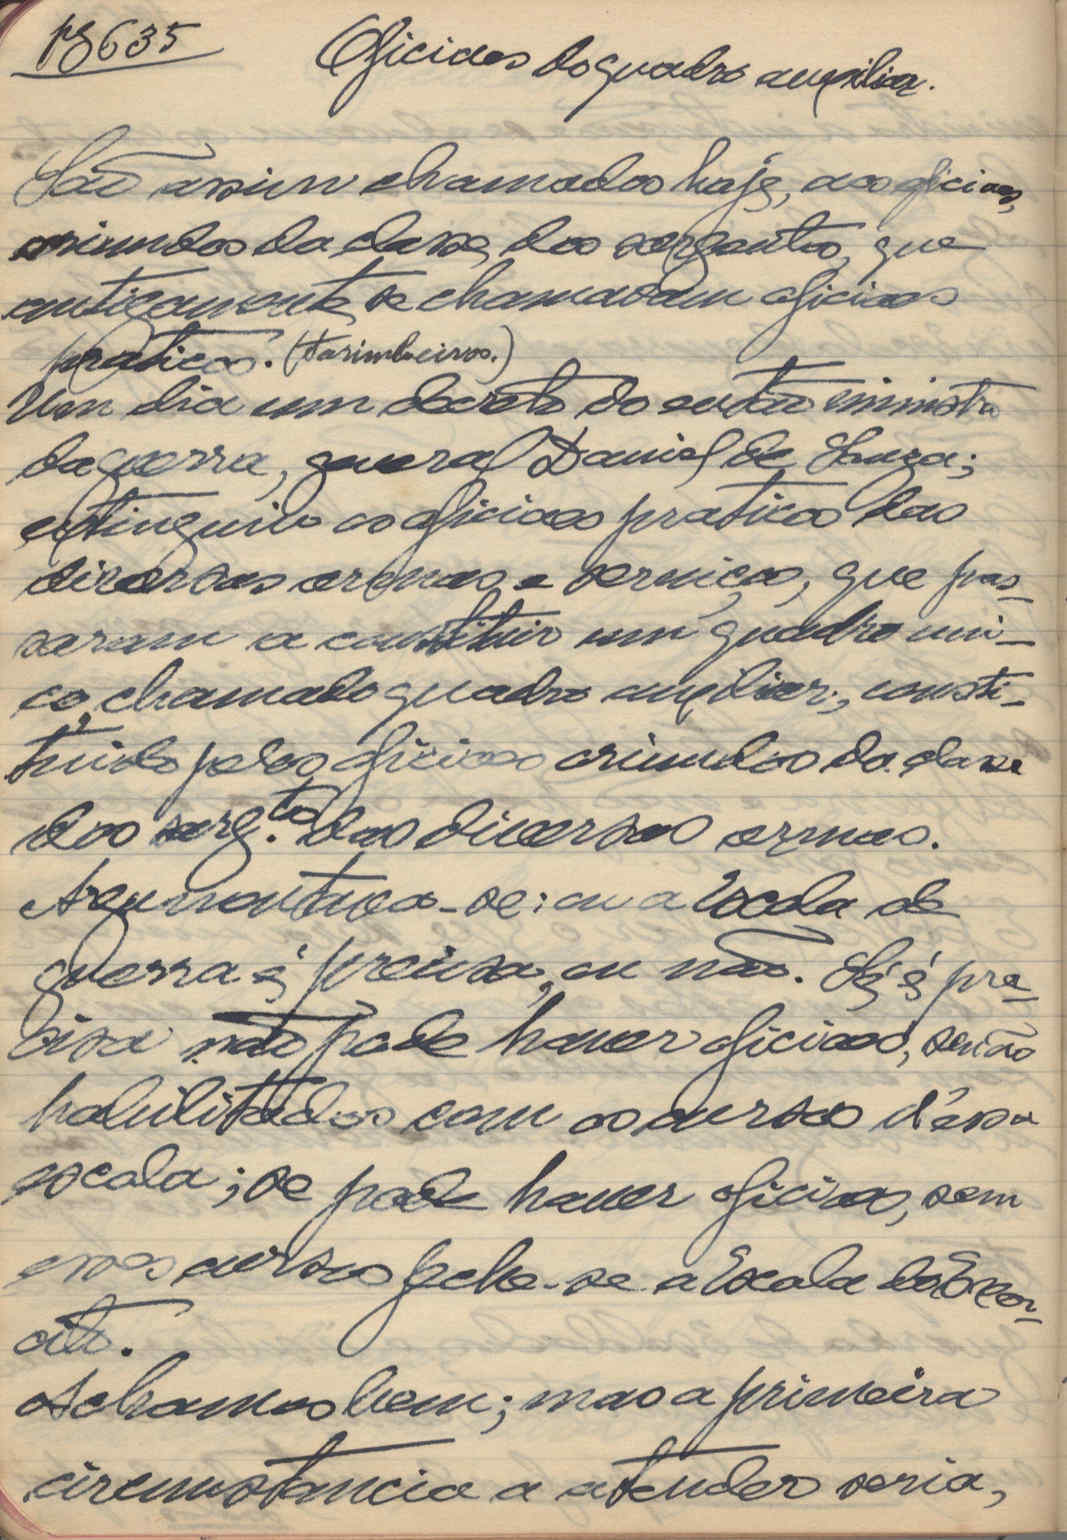 pg 635
Oficiaes do quadro auxiliar.
São assim chamados hoje, aos oficiaes,
oriundos da classe, dos sargentos, que
antigamente se chamavam oficiaes
praticos. (tarimbeiros.)
Um dia um decreto do então ministro
da guerra, general Daniel de Souza;
extinguiu os oficiaes praticos das
diversas armas e serviços, que pas-
saram a constituir um quadro uni-
co, chamado quadro auxiliar; consti-
tuido pelos oficiaes oriundos da classe
dos sarg.tos das diversas armas.
Argumentava-se: ou a Escola de
guerra é precisa, ou não. Se é pre-
cisa não pode haver oficiaes, senão
habilitados com os cursos d'essa
escola; se pode haver oficiaes, sem
esses cursos feche-se a Escola do Exer-
cito.
Achamos bem; mas a primeira
circunstancia a atender seria,